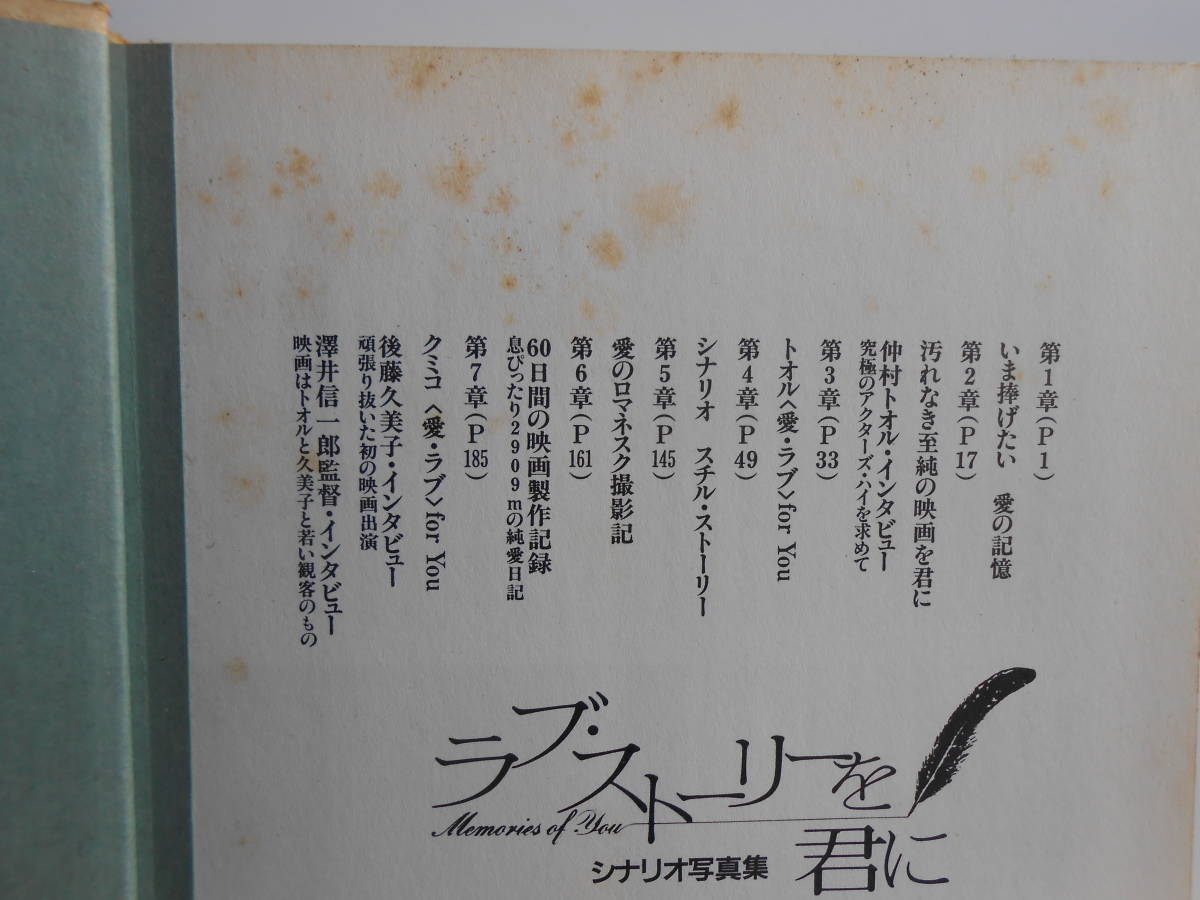 第1章(P1)
いま捧げたい 愛の記憶
第2章(P17)
汚れなき至純の映画を君に
仲村トオル・インタビュー
究極のアクターズ・ハイを求めて
第3章(P33)
トオル〈愛・ラブ〉for You
第4章(P49)
シナリオ スチル・ストーリー
第5章(P145)
愛のロマネスク撮影記
第6章(P161)
60日間の映画製作記録
息ぴったり2909mの純愛日記
第7章(P185)
クミコ〈愛・ラブ〉for You
後藤久美子・インタビュー
頑張り抜いた初の映画出演
澤井信一郎監督・インタビュー
映画はトオルと久美子と若い観客のもの
ラブ・ストーリーを
君に
Memories of You
シナリオ写真集